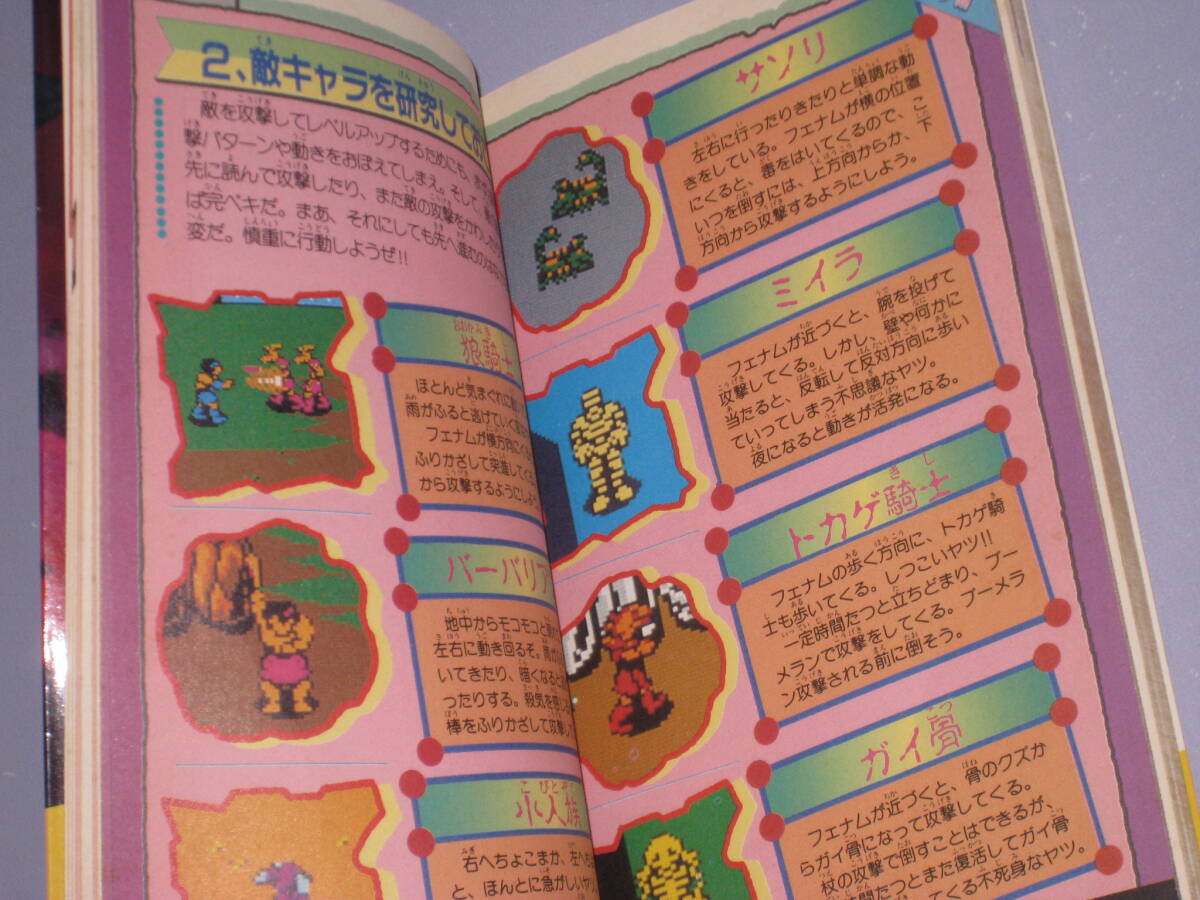 2、敵キャラを研究して
敵を攻撃してレベルアップするためにも、
撃パターンや動きをおぼえてしまえ。そして、
先に読んで攻撃したり、また敵の攻撃をかわし
ば完ペキだ。まあ、それにしても先へ進むの
変だ。慎重に行動しようぜ!!
狼騎士
ほとんど気まぐれに動
雨がふると逃げていく
フェナムが横方向にく
ふりかざして突進して
から攻撃するようにしよ
バーバリア
地中からモコモコと
左右に動き回るぞ。雨が
いてきたり、暗くなると
ったりする。殺気を
棒をふりかざして攻撃し
小人族
右へちょこまか、左へ
と、ほんとに急がしいヤ
サソリ
左右に行ったりきたりと単調な動
きをしている。フェナムが横の位置
にくると、毒をはいてくるので、こ
いつを倒すには、上方向からか、下
方向から攻撃するようにしよう。
ミイラ
フェナムが近づくと、腕を投げて
攻撃してくる。しかし、壁や何かに
当たると、反転して反対方向に歩い
ていってしまう不思議なヤツ。
夜になると動きが活発になる。
トカゲ騎士
フェナムの歩く方向に、トカゲ騎
士も歩いてくる。しつこいヤツ!!
一定時間たつと立ちどまり、ブー
メランで攻撃をしてくる。ブーメラ
ン攻撃される前に倒そう。
ガイ骨
フェナムが近づくと、骨のクズか
らガイ骨になって攻撃してくる。
杖の攻撃で倒すことはできるが、
時間たつとまた復活してガイ骨
てくる不死身なヤツ。